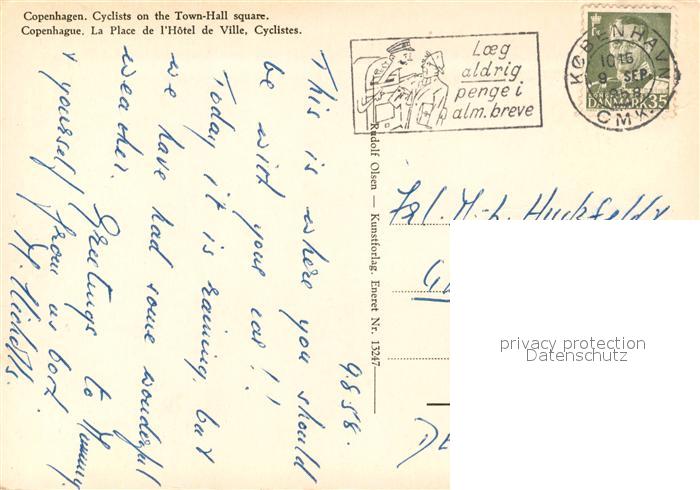 Copenhagen. Cyclists on the Town-Hall square.
Copenhague. La Place de l'Hôtel de Ville, Cyclistes.
Læg
aldrig
penge i
alm. breve
KØBENHAVN
1016
9 SEP.
CMK.
DANMARK 35
Rudolf Olsen — Kunstforlag. Eneret Nr. 13247
9.8.58.
This is where you should
be with your car!!
Today it is raining, but
we have had some wonderful
weather. Greetings to Mummy
& yourself from us both.
Frl. H. L.
privacy protection
Datenschutz